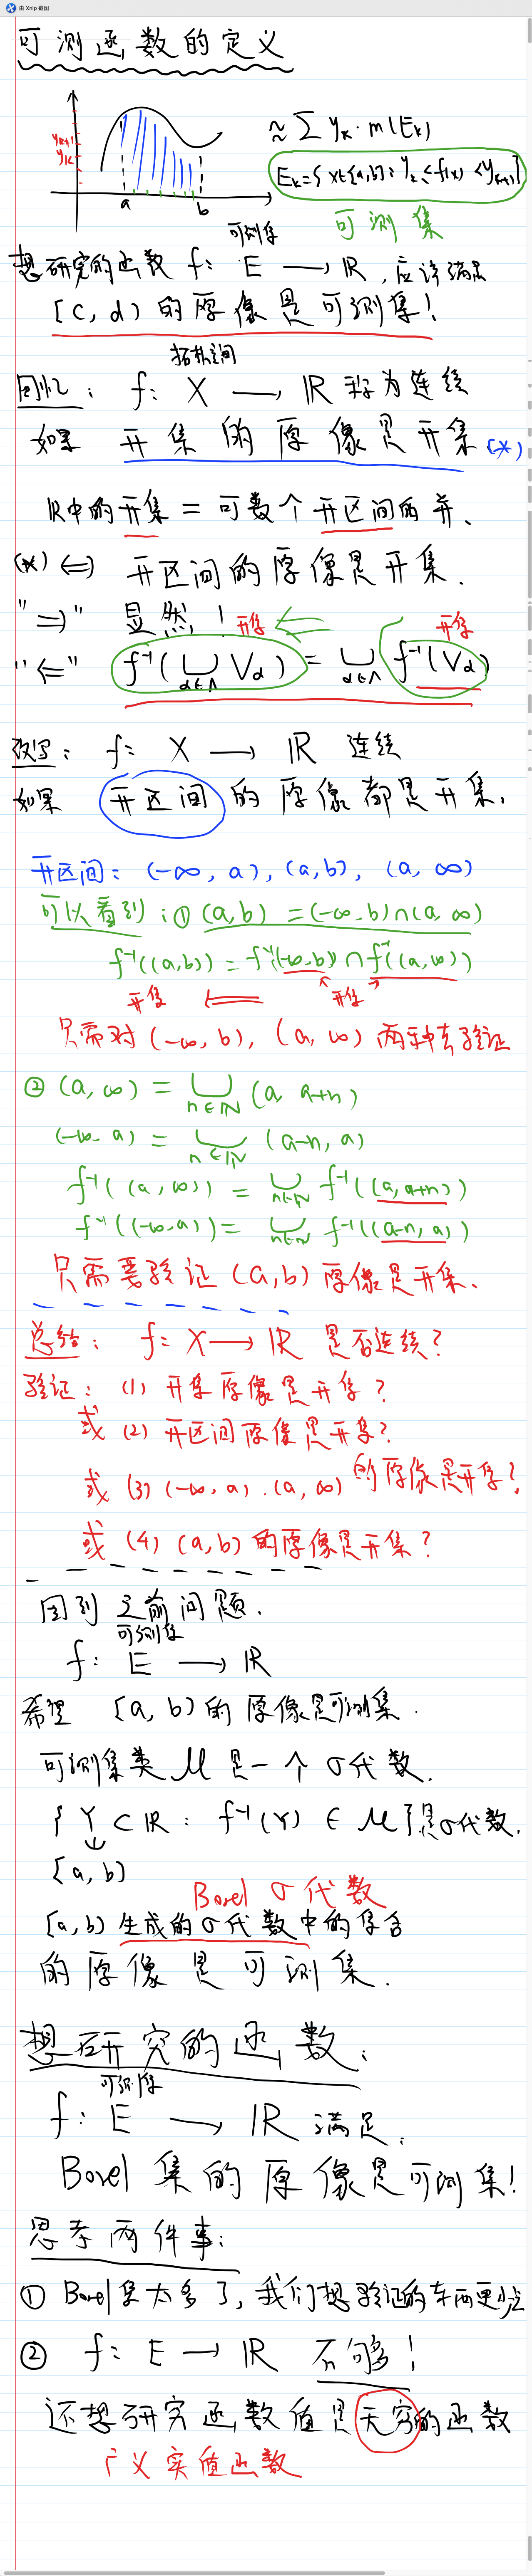 由 Xnip 截图
可测函数的定义
y_{k+1}
y_k
a b
≈ ∑ y_k · m(E_k)
E_k = { x∈[a,b) : y_k ≤ f(x) < y_{k+1} }
可测集
可测集
想研究的函数 f: E ⟶ ℝ, 应该满足
[c, d) 的原像是可测集!
拓扑空间
回忆: f: X ⟶ ℝ 称为连续
如果 开集的原像是开集 (*)
ℝ中的开集 = 可数个开区间的并.
(*) ⟺ 开区间的原像是开集.
"⟹" 显然!
开集 ⟸ 开集
"⟸" f⁻¹(⋃_{α∈Λ} V_α) = ⋃_{α∈Λ} f⁻¹(V_α)
改写: f: X ⟶ ℝ 连续
如果 开区间 的原像都是开集.
开区间: (-∞, a), (a, b), (a, ∞)
可以看到: ① (a, b) = (-∞, b) ∩ (a, ∞)
f⁻¹((a,b)) = f⁻¹((-∞, b)) ∩ f⁻¹((a, ∞))
开集 ⟸ 开集
只需对 (-∞, b), (a, ∞) 两种去验证
② (a, ∞) = ⋃_{n∈ℕ} (a, a+n)
(-∞, a) = ⋃_{n∈ℕ} (a-n, a)
f⁻¹((a, ∞)) = ⋃_{n∈ℕ} f⁻¹((a, a+n))
f⁻¹((-∞, a)) = ⋃_{n∈ℕ} f⁻¹((a-n, a))
只需要验证 (a, b) 原像是开集.
总结: f: X ⟶ ℝ 是否连续?
验证: (1) 开集原像是开集?
或 (2) 开区间原像是开集?
或 (3) (-∞, a), (a, ∞) 的原像是开集?
或 (4) (a, b) 的原像是开集?
回到之前问题.
可测集
f: E ⟶ ℝ
希望 [a, b) 的原像是可测集.
可测集类 𝓜 是一个 σ代数.
{ Y ⊂ ℝ : f⁻¹(Y) ∈ 𝓜 } 是σ代数.
↓
[a, b)
Borel σ代数
[a, b) 生成的σ代数中的集合
的原像是可测集.
想研究的函数:
可测集
f: E ⟶ ℝ 满足:
Borel 集的原像是可测集!
思考两件事:
① Borel集太多了, 我们想验证的东西更少些
② f: E ⟶ ℝ 不够!
还想研究函数值是无穷的函数
广义实值函数